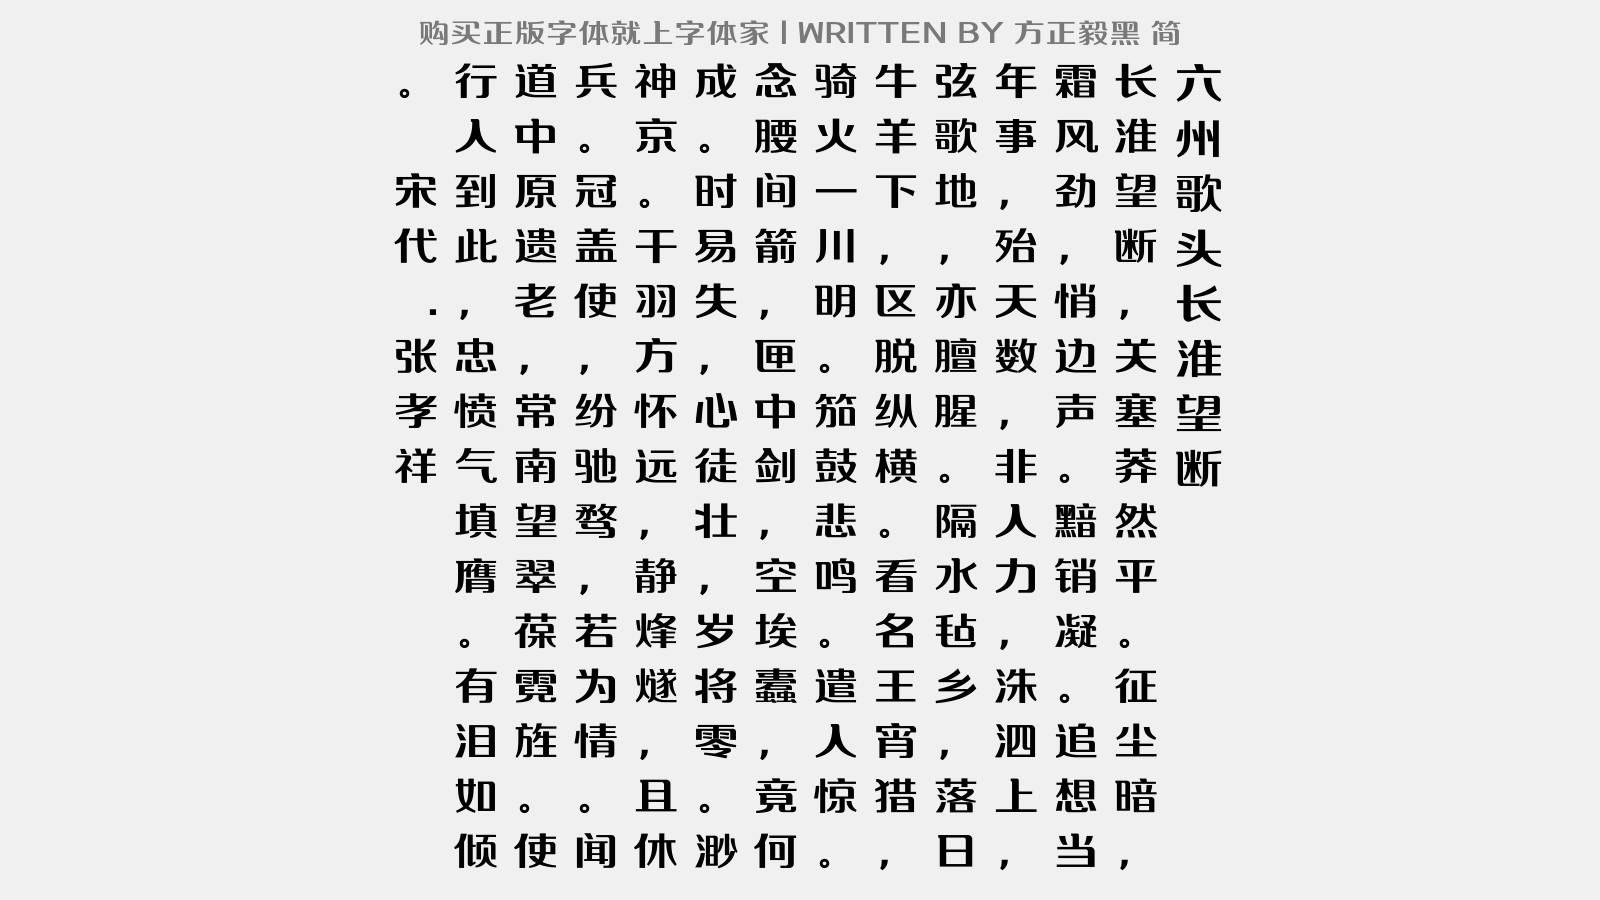 购买正版字体就上字体家 | WRITTEN BY 方正毅黑 简
六州歌头长淮望断
长淮望断，关塞莽然平。征尘暗，
霜风劲，悄边声。黯销凝。追想当
年事，殆天数，非人力，洙泗上，
弦歌地，亦膻腥。隔水毡乡，落日
牛羊下，区脱纵横。看名王宵猎，
骑火一川明。笳鼓悲鸣。遣人惊。
念腰间箭，匣中剑，空埃蠹，竟何
成。时易失，心徒壮，岁将零。渺
神京。干羽方怀远，静烽燧，且休
兵。冠盖使，纷驰骛，若为情。闻
道中原遗老，常南望翠葆霓旌。使
行人到此，忠愤气填膺。有泪如倾
。 宋代.张孝祥